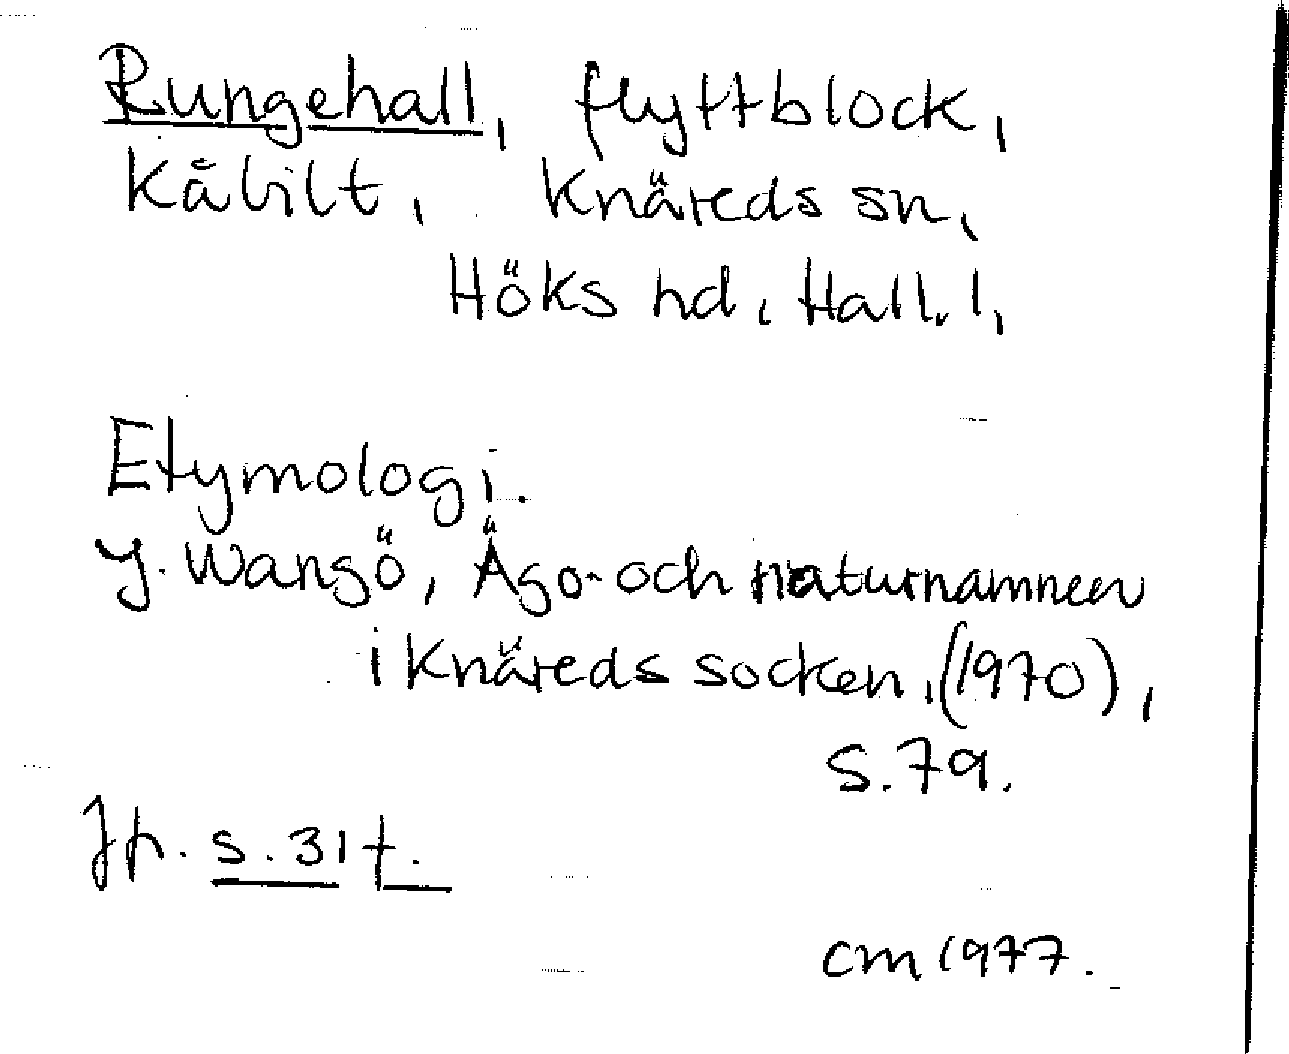 Rungehall, flyttblock,
Kåbilt, Knäreds sn,
Höks hd, Hall. l,
Etymologi.
Y. Wangö, Ägo- och naturnamnen
i Knäreds socken, (1970),
s. 79.
Jfr. s. 31 f.
CM 1977.